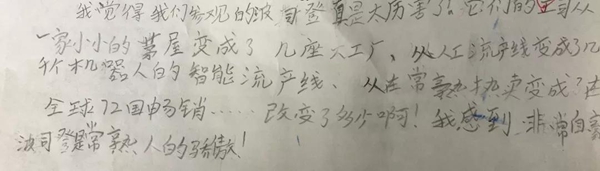 我觉得我们参观的波司登真是太厉害了!它们的公司从
一家小小的茅屋变成了几座大工厂,从人工流产线变成了几
个机器人的智能流产线、从在常熟热卖变成了在
全球72国畅销……改变了多少啊!我感到非常自豪
波司登是常熟人的骄傲!